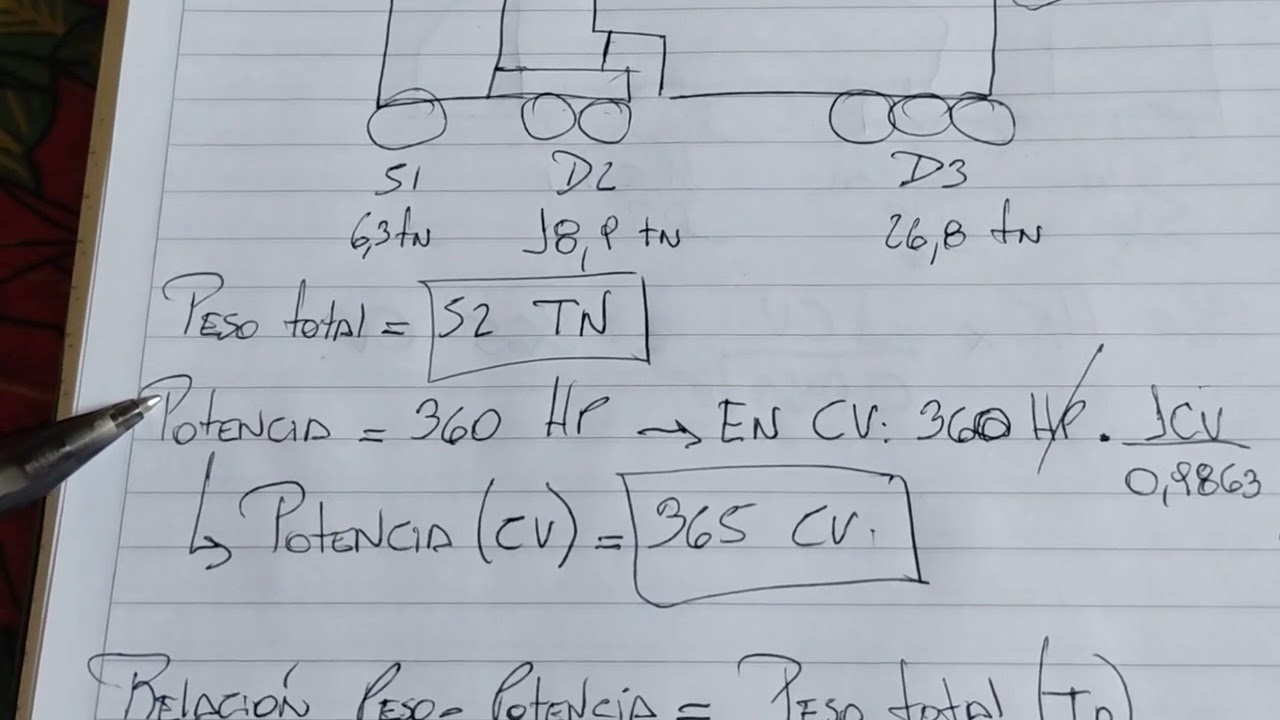 S1 D2 D3
6,3 tN 18,9 tN 26,8 tN
PESO totAl = 52 TN
POTENCIA = 360 HP → EN CV: 360 HP . 1CV
0,9863
↳ POTENCIA (CV) = 365 CV.
RELACIÓN PESO-POTENCIA = PESO total (Tn)